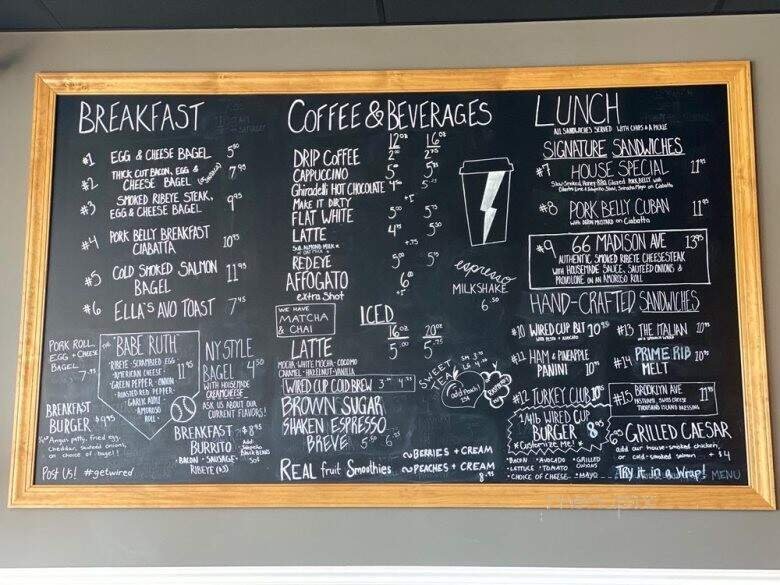 BREAKFAST
#1 EGG & CHEESE BAGEL 5
#2 THICK CUT BACON, EGG & CHEESE BAGEL 7 95
#3 SMOKED RIBEYE STEAK, EGG & CHEESE BAGEL 9 95
#4 PORK BELLY BREAKFAST CIABATTA 10 95
#5 COLD SMOKED SALMON BAGEL 11 95
#6 ELLA'S AVO TOAST 7 95
PORK ROLL
EGG + CHEESE
BAGEL
7.95
THE "BABE RUTH"
RIBEYE · SCRAMBLED EGG
AMERICAN CHEESE ·
GREEN PEPPER · ONION
ROASTED RED PEPPER ·
GARLIC AIOLI
AMOROSO
ROLL
11 95
NY STYLE
BAGEL 4 50
WITH HOUSEMADE
CREAMCHEESE
ASK US ABOUT OUR
CURRENT FLAVORS!
BREAKFAST
BURGER $9 95
Angus patty, fried egg,
Cheddar, sauteed onions,
on choice of bagel!
BREAKFAST
BURRITO
BACON · SAUSAGE ·
RIBEYE (+3)
$8 95
Add
Jalapeño
Black Beans
50¢
Post Us! #getwired
COFFEE & BEVERAGES
12 oz 16 oz
DRIP COFFEE 2 2 75
CAPPUCCINO 5 5
Ghiradelli HOT CHOCOLATE 4 5
MAKE IT DIRTY +.5
FLAT WHITE 5 5
LATTE 4 5
SUB ALMOND MILK +.75
REDEYE 5 5
AFFOGATO 6
extra Shot
WE HAVE
MATCHA
& CHAI
espresso
MILKSHAKE
6.50
ICED 16 oz 20 oz
LATTE 5 5
MOCHA · WHITE MOCHA · COCOMO
CARAMEL · HAZELNUT · VANILLA
WIRED CUP COLD BREW 3 4
SWEET
TEA
SM 3
LG 4
add Peach!
BROWN SUGAR
SHAKEN ESPRESSO
BREVE 5 6
REAL fruit Smoothies
~BERRIES + CREAM
~PEACHES + CREAM
8.95
LUNCH
ALL SANDWICHES SERVED WITH CHIPS & A PICKLE
SIGNATURE SANDWICHES
#7 HOUSE SPECIAL 11 95
#8 PORK BELLY CUBAN 11 95
WITH DIJON MUSTARD on Ciabatta
#9 66 MADISON AVE 13 95
AUTHENTIC, SMOKED RIBEYE CHEESESTEAK
WITH HOUSEMADE SAUCE, SAUTEED ONIONS &
PROVOLONE ON AN AMOROSO ROLL
HAND-CRAFTED SANDWICHES
#10 WIRED CUP BLT 10 95
WITH PESTO + AVOCADO
#11 HAM & PINEAPPLE
PANINI 10 95
#12 TURKEY CLUB 10 95
#13 THE ITALIAN 10 95
#14 PRIME RIB
MELT 10 95
#15 BROOKLYN AVE 11 95
PASTRAMI, SWISS CHEESE
THOUSAND ISLAND DRESSING
1/4 lb WIRED CUP
BURGER 8 95
*Customize Me!*
BACON · AVOCADO · GRILLED ONIONS
LETTUCE · TOMATO
CHOICE OF CHEESE · MAYO
GRILLED CAESAR
add our house-smoked chicken,
or cold-smoked salmon +$4
Try it in a Wrap!
MENU